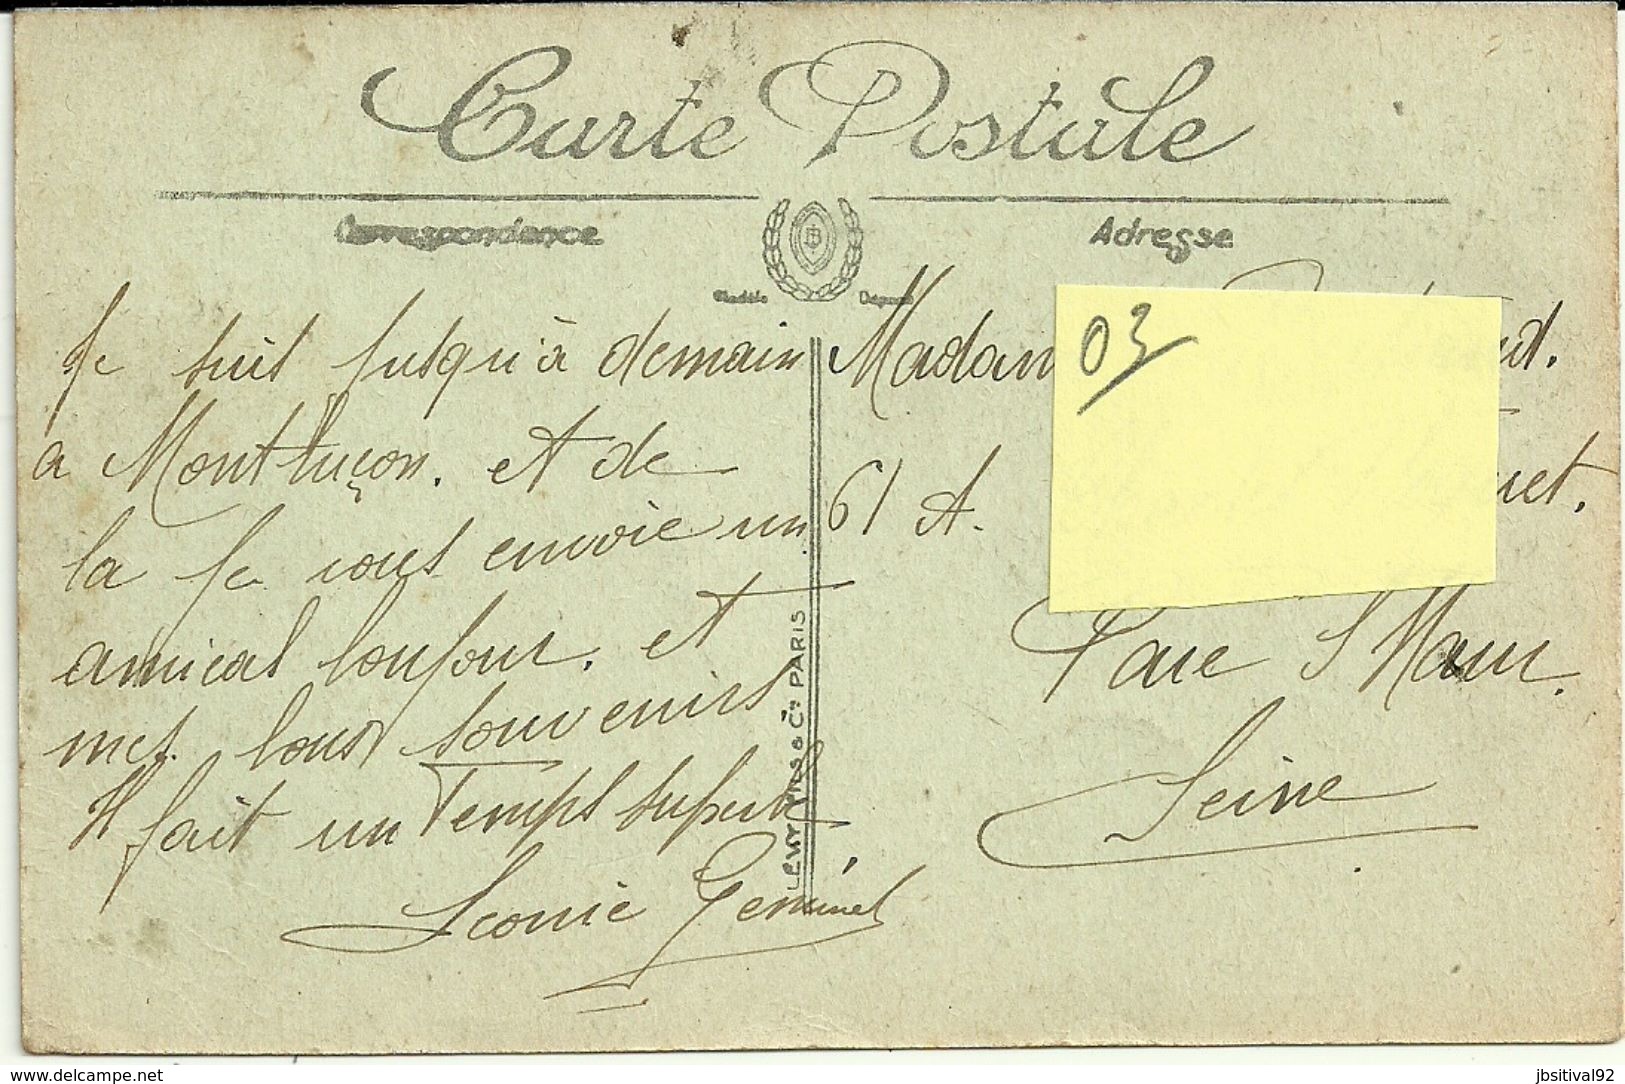 Carte Postale
Correspondance
Adresse
Modèle Déposé
Je suis jusqu'à demain
a Montluçon. et de
la je vous envoie un
amical bonjour. et
mes bons souvenirs
Il fait un Temps superbe
Leonie
LEVY FILS & Cie PARIS
Madam
03
ud.
61 A.
uet.
Parc St Maur.
Seine
www.delcampe.net
jbsitival92